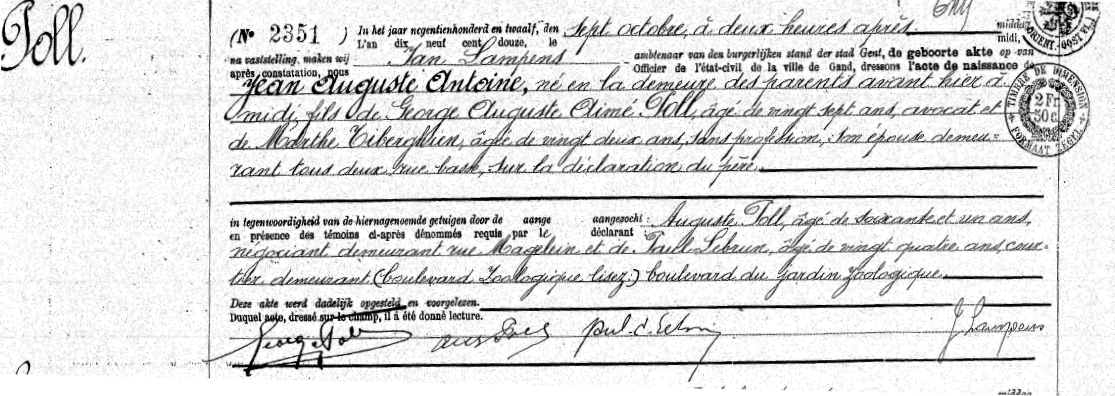 Toll.
(№ 2351) In het jaar negentienhonderd en twaalf, den sept octobre, à deux heures après middag
L'an dix neuf cent douze, le midi,
na vaststelling, maken wij Jan Lampens ambtenaar van den burgerlijken stand der stad Gent, de geboorte akte op van
après constatation, nous Officier de l'état-civil de la ville de Gand, dressons l'acte de naissance de
Jean Auguste Antoine, né en la demeure des parents avant hier à
midi, fils de George Auguste Aimé Toll, âgé de vingt sept ans, avocat et
de Marthe Tiberghien, âgée de vingt deux ans, sans profession, son épouse demeu=
rant tous deux rue basse, sur la déclaration du père
in tegenwoordigheid van de hiernagenoemde getuigen door de aange aangezocht: Auguste Toll, âgé de soixante et un ans,
en présence des témoins ci-après dénommés requis par le déclarant
négociant demeurant rue Magelein et de Paul Lebrun, âgé de vingt quatre ans, cour=
tier demeurant (boulevard Zoologique lisez:) boulevard du Jardin Zoologique.
Deze akte werd dadelijk opgesteld en voorgelezen.
Duquel acte, dressé sur le champ, il a été donné lecture.
George Toll J Lampens
TIMBRE DE DIMENSION
2 Fr
50 c
FORMAAT ZEGEL
middag